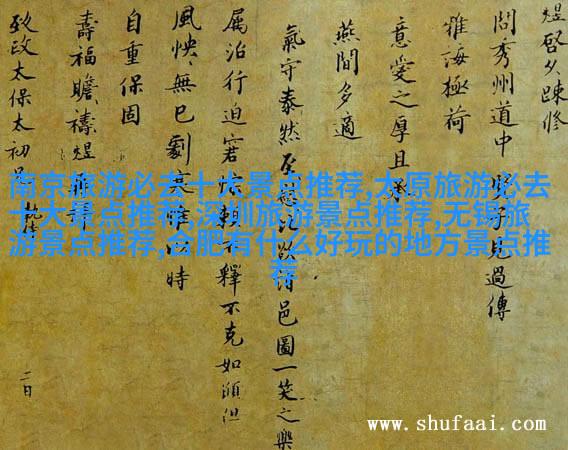 煜啓久疎修
問秀州道中兒過傳
雅海極荷
意愛之厚且
燕間多適
氣守泰然至欲得邑圖一笑之樂
屬治行迫窘賴不釋不克如頎但
風怏無已劇時
自重保固
壽福瞻禱煜
致政太保太初
二日
南京旅游必去十大景点推荐,太原旅游必去
十大景点推荐,深圳旅游景点推荐,无锡旅
游景点推荐,合肥有什么好玩的地方景点推
荐
www.shufaai.com